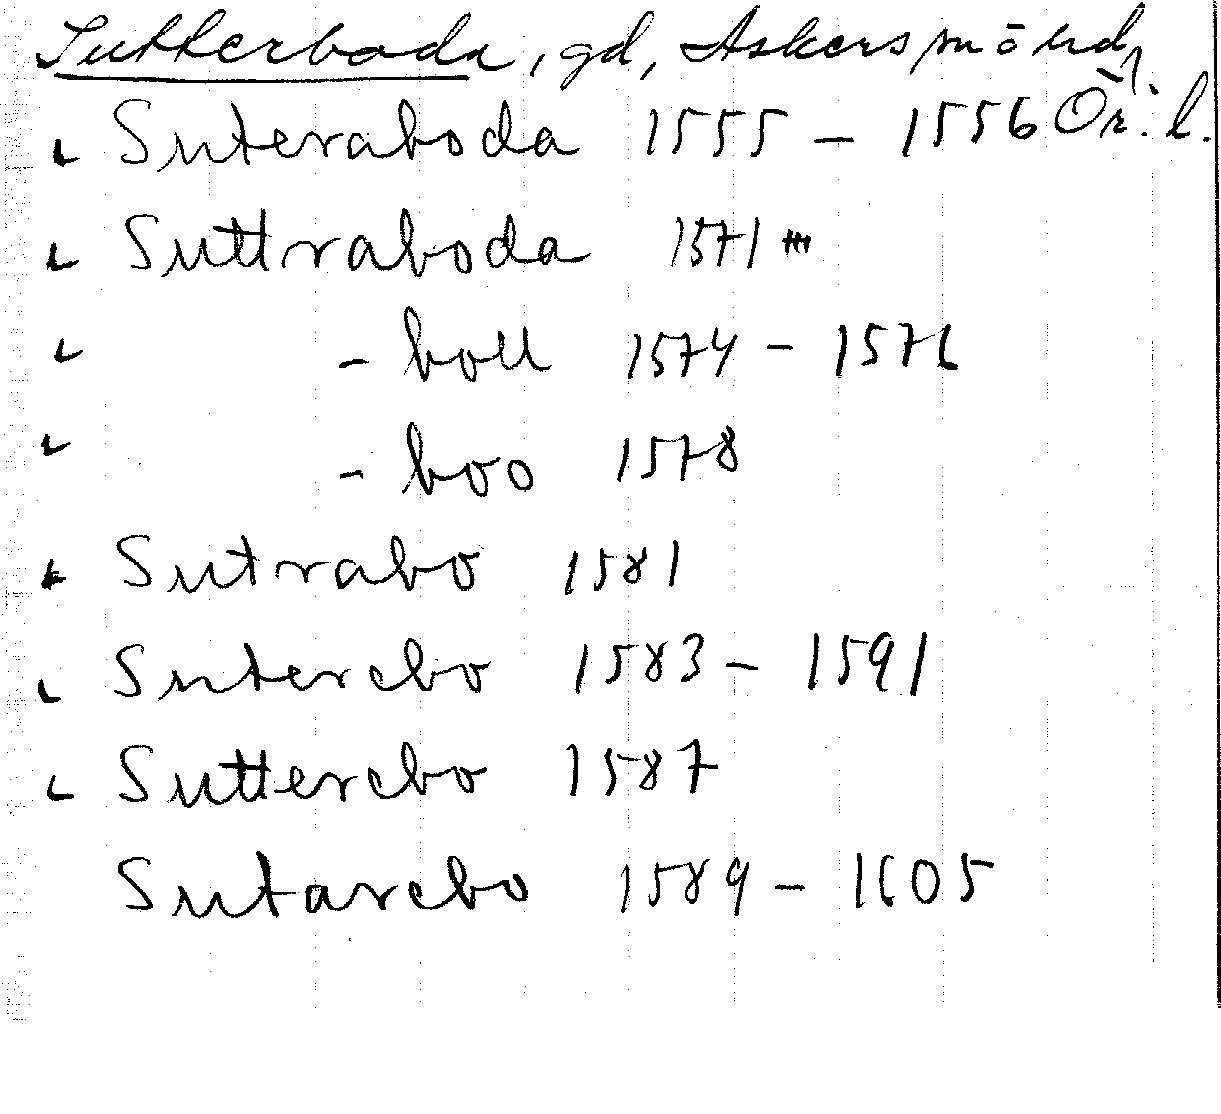 Sutterboda, gd, Askers sn o hd,
Suteraboda 1555 – 1556 Ör. l.
Suttraboda 1571
- boll 1574 – 1576
- boo 1578
Sutrabo 1581
Suterebo 1583 – 1591
Sutterebo 1587
Sutarebo 1589 – 1605